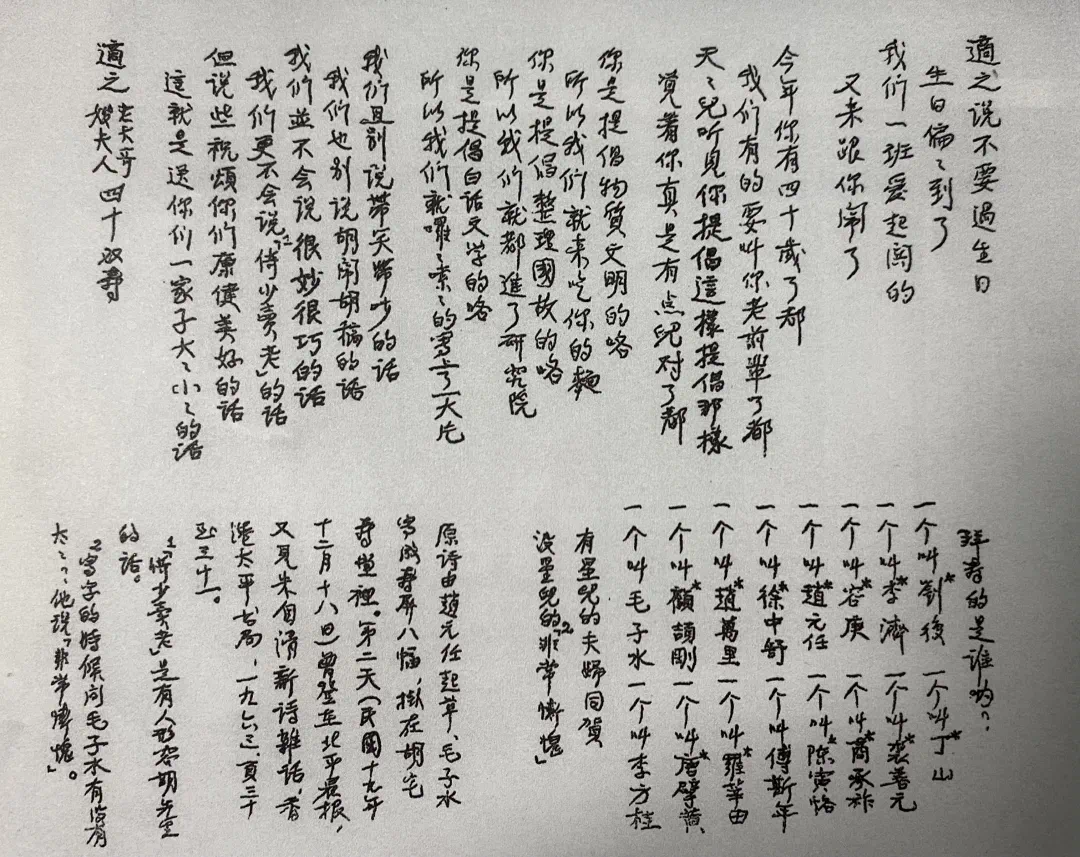 適之说不要過生日
生日偏〻到了
我们一班爱起鬨的
又来跟你闹了
今年你有四十歲了都
我们有的要叫你老前輩了都
天〻兒听見你提倡這樣提倡那樣
覺着你真是有点兒对了都
你是提倡物質文明的咯
所以我们就来吃你的麵
你是提倡整理國故的咯
所以我们就都進了研究院
你是提倡白话文学的咯
所以我们就囉〻嗦〻的寫上了一大片
我们且别说带笑带吵的话
我们也别说胡闹胡稿的话
我们並不会说很妙很巧的话
我们更不会说"倚少賣老"¹的话
但说些祝頌你们康健美好的话
這就是送你们一家子大〻小〻的话
適之老大哥嫂夫人 四十双壽
拜壽的是谁呐？
一个叫劉*復 一个叫丁*山
一个叫李*濟 一个叫裘*善元
一个叫容*庚 一个叫商*承祚
一个叫趙*元任 一个叫陈*寅恪
一个叫徐*中舒 一个叫傅斯年
一个叫趙*萬里 一个叫羅*莘田
一个叫顧*頡剛 一个叫唐*擘黄
一个叫毛子水 一个叫李方桂
有星兒的夫婦同賀
没星兒的"非常慚愧"²
原诗由趙元任起草、毛子水
寫成壽屏八幅，掛在胡宅
壽堂裡。第二天（民國十九年
十二月十八日）曾登在北平晨报，
又见朱自清新诗雜话，香
港太平书局，一九六三，頁三十
至三十一。
1「倚少賣老」是有人形容胡先生
的话。
2寫字的時候问毛子水有没有
太〻，他说「非常慚愧」。